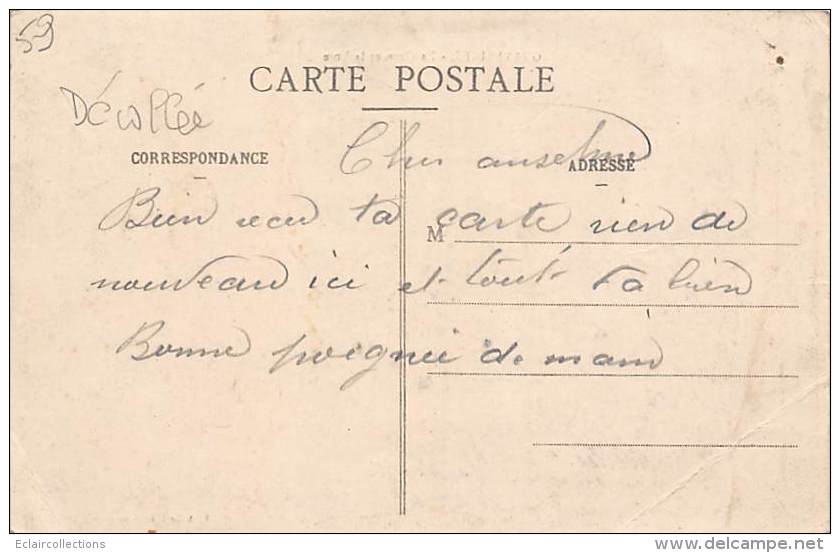 59
CARTE POSTALE
Décollée
CORRESPONDANCE
ADRESSE
Cher anselme
Bien recu ta carte rien de
M
nouveau ici et tout va bien
Bonne poignée de main
Eclaircollections
www.delcampe.net